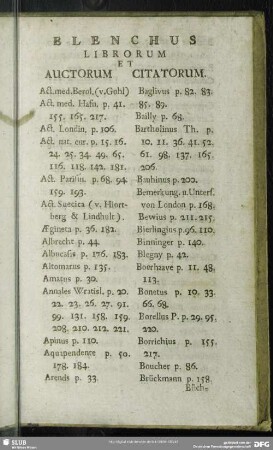 ELENCHUS
LIBRORUM
ET
AUCTORUM CITATORUM.
Act. med. Berol. (v. Gohl)
Act. med. Hafn. p. 41.
155. 165. 217.
Act. Londin. p. 106.
Act. nat. cur. p. 15. 16.
24. 25. 34. 49. 65.
116. 118. 142. 181.
Act. Parisin. p. 68. 94.
159. 193.
Act. Suecica (v. Hiort-
berg & Lindhult.)
Ægineta p. 36. 182.
Albrecht p. 44.
Albucasis p. 176. 183.
Altomarus p. 135.
Amatus p. 30.
Annales Wratisl. p. 20.
22. 23. 26. 27. 91.
99. 131. 158. 159.
208. 210. 212. 221.
Apinus p. 110.
Aquapendente p. 50.
178. 184.
Arends p. 33
Baglivus p. 82. 83.
85. 89.
Bailly p. 68.
Bartholinus Th. p.
10. 11. 36. 41. 52.
61. 98. 137. 165.
206.
Bauhinus p. 200.
Bemerkung. u. Unters.
von London p. 168.
Bewius p. 211. 215.
Bierlingius p. 96. 110.
Binninger p. 140.
Blegny p. 42.
Boerhave p. 11. 48.
113.
Bonetus p. 10. 33.
66. 68.
Borellus P. p. 29. 95.
220.
Borrichius p. 155.
217.
Boucher p. 86.
Brückmann p. 158.
SLUB
DFG